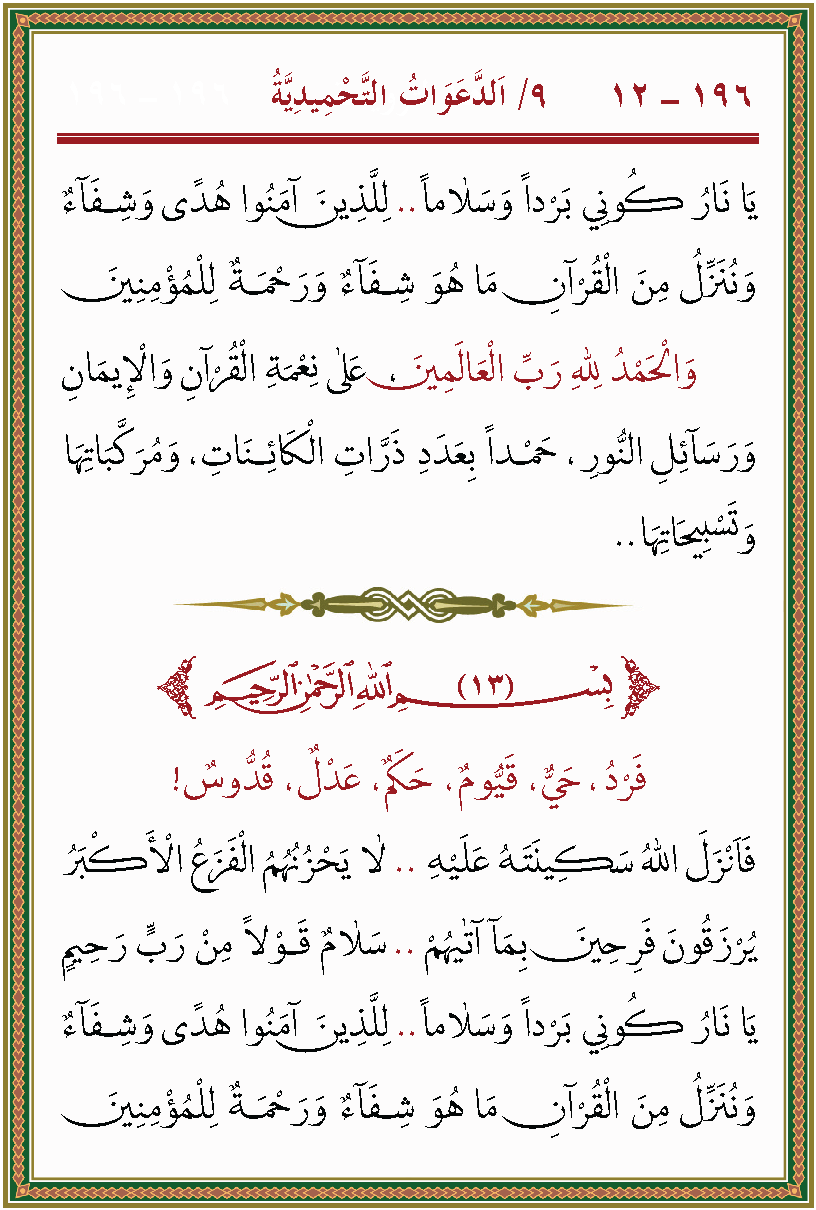 ١٩٦ – ١٢ ٩/ اَلدَّعَوَاتُ التَّحْمِيدِيَّةُ ١٩٦ – ١٩٦
يَا نَارُ كُونِي بَرْداً وَسَلَاماً .. لِلَّذِينَ آمَنُوا هُدًى وَشِفَآءٌ
وَنُنَزِّلُ مِنَ الْقُرْآنِ مَا هُوَ شِفَآءٌ وَرَحْمَةٌ لِلْمُؤْمِنِينَ
وَالْحَمْدُ لِلّٰهِ رَبِّ الْعَالَمِينَ ، عَلٰى نِعْمَةِ الْقُرْآنِ وَالْإِيمَانِ
وَرَسَآئِلِ النُّورِ ، حَمْداً بِعَدَدِ ذَرَّاتِ الْكَائِنَاتِ ، وَمُرَكَّبَاتِهَا
وَتَسْبِيحَاتِهَا ..
بِسْمِ (١٣) اللّٰهِ الرَّحْمٰنِ الرَّحِيمِ
فَرْدُ ، حَيٌّ ، قَيُّومٌ ، حَكَمٌ ، عَدْلٌ ، قُدُّوسٌ !
فَاَنْزَلَ اللّٰهُ سَكِينَتَهُ عَلَيْهِ .. لَا يَحْزُنُهُمُ الْفَزَعُ الْأَكْبَرُ
يُرْزَقُونَ فَرِحِينَ بِمَآ آتٰيهُمْ .. سَلَامٌ قَوْلاً مِنْ رَبٍّ رَحِيمٍ
يَا نَارُ كُونِي بَرْداً وَسَلَاماً .. لِلَّذِينَ آمَنُوا هُدًى وَشِفَآءٌ
وَنُنَزِّلُ مِنَ الْقُرْآنِ مَا هُوَ شِفَآءٌ وَرَحْمَةٌ لِلْمُؤْمِنِينَ